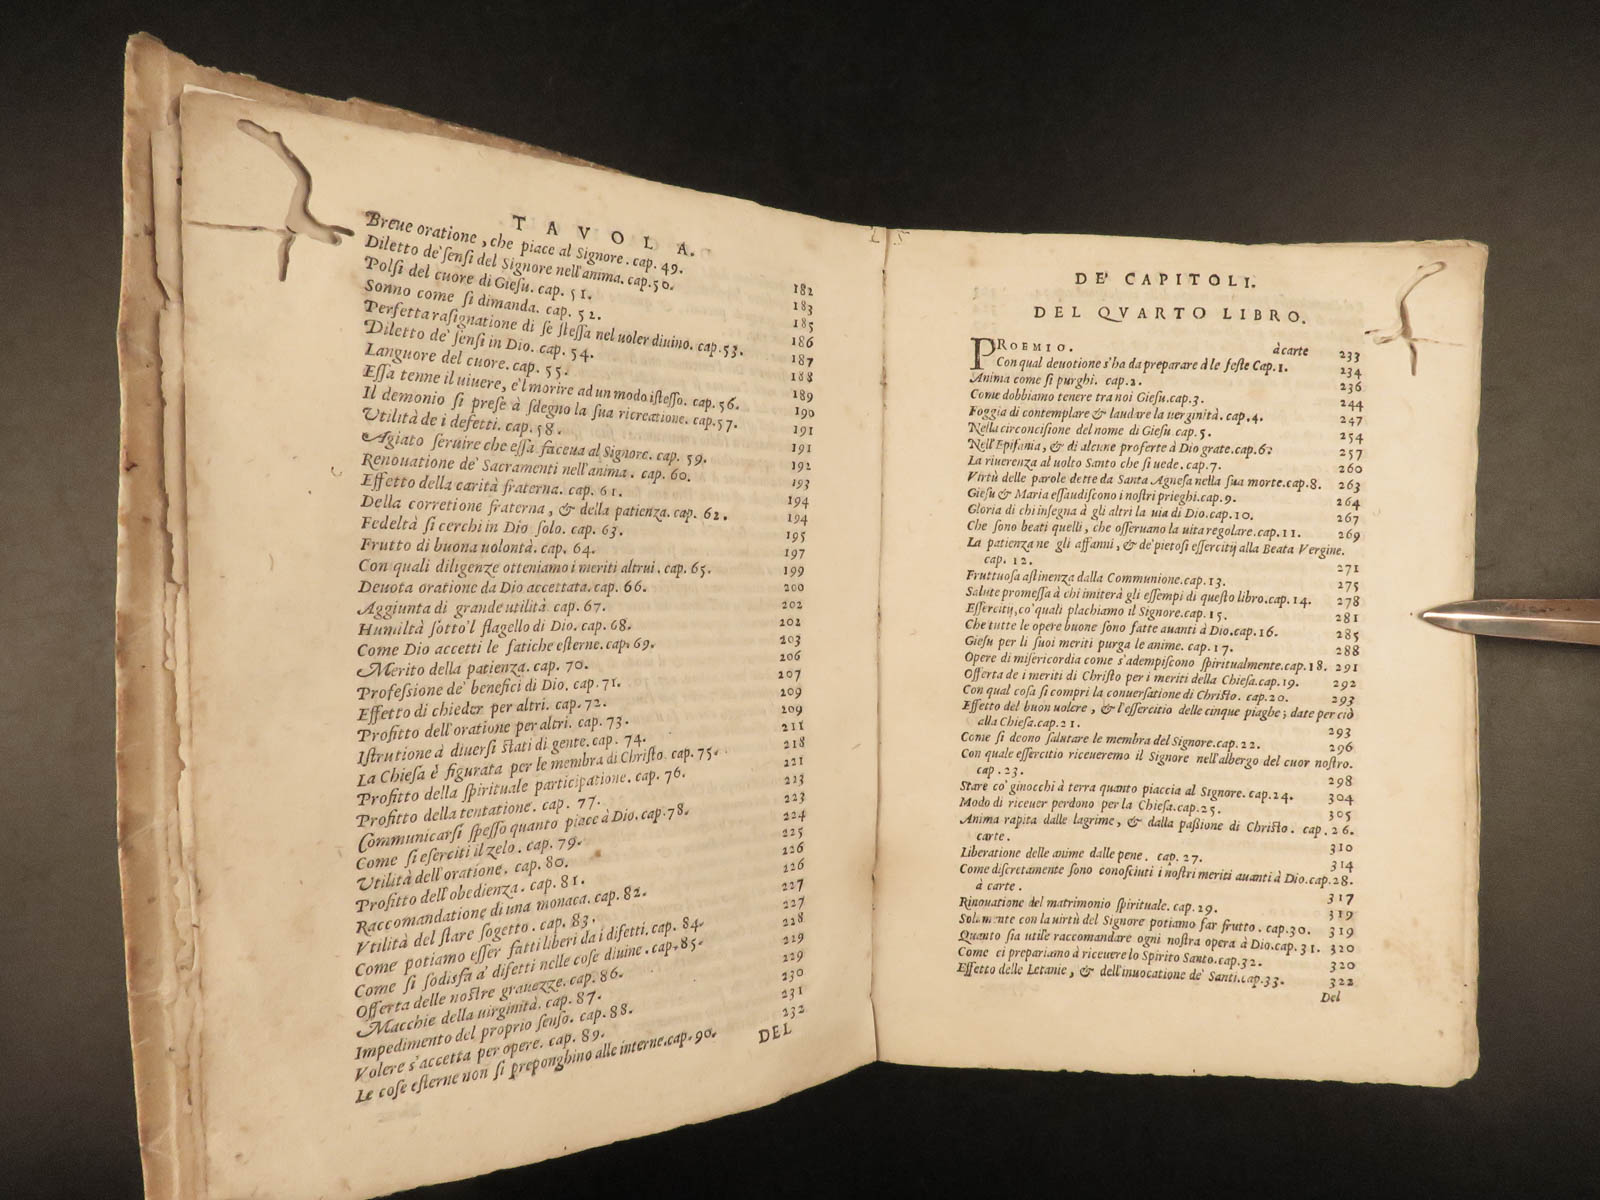 TAVOLA.
Breue oratione, che piace al Signore. cap. 49. 182
Diletto de' ſenſi del Signore nell'anima. cap. 50. 183
Polſi del cuore di Gieſu. cap. 51. 185
Sonno come ſi dimanda. cap. 52. 186
Perfetta raſignatione di ſe ſteſſa nel uoler diuino. cap. 53. 187
Diletto de' ſenſi in Dio. cap. 54. 188
Languore del cuore. cap. 55. 189
Eſſa tenne il uiuere, e'l morire ad un modo iſteſſo. cap. 56. 190
Il demonio ſi preſe à ſdegno la ſua ricreatione. cap. 57. 191
Vtilità de i defetti. cap. 58. 191
Agiato ſeruire che eſſa faceua al Signore. cap. 59. 192
Renouatione de' Sacramenti nell'anima. cap. 60. 193
Effetto della carità fraterna. cap. 61. 194
Della corretione fraterna, & della patienza. cap. 62. 194
Fedeltà ſi cerchi in Dio ſolo. cap. 63. 195
Frutto di buona uolontà. cap. 64. 197
Con quali diligenze otteniamo i meriti altrui. cap. 65. 199
Deuota oratione da Dio accettata. cap. 66. 200
Aggiunta di grande utilità. cap. 67. 202
Humiltà ſotto'l flagello di Dio. cap. 68. 202
Come Dio accetti le fatiche eſterne. cap. 69. 203
Merito della patienza. cap. 70. 206
Profeſſione de' benefici di Dio. cap. 71. 207
Effetto di chieder per altri. cap. 72. 209
Profitto dell'oratione per altri. cap. 73. 209
Iſtrutione à diuerſi ſtati di gente. cap. 74. 211
La Chieſa è figurata per le membra di Chriſto. cap. 75. 218
Profitto della ſpirituale participatione. cap. 76. 221
Profitto della tentatione. cap. 77. 223
Communicarſi ſpeſſo quanto piace à Dio. cap. 78. 223
Come ſi eſerciti il zelo. cap. 79. 224
Vtilità dell'oratione. cap. 80. 225
Profitto dell'obedienza. cap. 81. 226
Raccomandatione di una monaca. cap. 82. 226
Vtilità del ſtare ſogetto. cap. 83. 227
Come potiamo eſſer fatti liberi da i difetti. cap. 84. 227
Come ſi ſodisfa a' difetti nelle coſe diuine. cap. 85. 228
Offerta delle noſtre grauezze. cap. 86. 229
Macchie della uirginità. cap. 87. 229
Impedimento del proprio ſenſo. cap. 88. 230
Volere s'accetta per opere. cap. 89. 231
Le coſe eſterne non ſi preponghino alle interne. cap. 90. 232
DEL
25
DE' CAPITOLI.
DEL QVARTO LIBRO.
PROEMIO. à carte 233
Con qual deuotione s'ha da preparare à le feſte Cap. 1. 234
Anima come ſi purghi. cap. 2. 236
Come dobbiamo tenere tra noi Gieſu. cap. 3. 244
Foggia di contemplare & laudare la uerginità. cap. 4. 247
Nella circonciſione del nome di Gieſu. cap. 5. 254
Nell'Epifania, & di alcune proferte à Dio grate. cap. 6. 257
La riuerenza al uolto Santo che ſi uede. cap. 7. 260
Virtù delle parole dette da Santa Agneſa nella ſua morte. cap. 8. 263
Gieſu & Maria eſſaudiſcono i noſtri prieghi. cap. 9. 264
Gloria di chi inſegna à gli altri la uia di Dio. cap. 10. 267
Che ſono beati quelli, che oſſeruano la uita regolare. cap. 11. 269
La patienza ne gli affanni, & de' pietoſi eſſercitij alla Beata Vergine.
cap. 12. 271
Fruttuoſa aſtinenza dalla Communione. cap. 13. 275
Salute promeſſa à chi imiterà gli eſſempi di queſto libro. cap. 14. 278
Eſſercitij, co' quali plachiamo il Signore. cap. 15. 281
Che tutte le opere buone ſono fatte auanti à Dio. cap. 16. 285
Gieſu per li ſuoi meriti purga le anime. cap. 17. 288
Opere di miſericordia come s'adempiſcono ſpiritualmente. cap. 18. 291
Offerta de i meriti di Chriſto per i meriti della Chieſa. cap. 19. 292
Con qual coſa ſi compri la conuerſatione di Chriſto. cap. 20. 293
Effetto del buon uolere, & l'eſſercitio delle cinque piaghe; date per ciò
alla Chieſa. cap. 21. 293
Come ſi deono ſalutare le membra del Signore. cap. 22. 296
Con quale eſſercitio riceueremo il Signore nell'albergo del cuor noſtro.
cap. 23. 298
Stare co' ginocchi à terra quanto piaccia al Signore. cap. 24. 304
Modo di riceuer perdono per la Chieſa. cap. 25. 305
Anima rapita dalle lagrime, & dalla paſſione di Chriſto. cap. 26.
carte. 310
Liberatione delle anime dalle pene. cap. 27. 314
Come diſcretamente ſono conoſciuti i noſtri meriti auanti à Dio. cap. 28.
à carte. 317
Rinouatione del matrimonio ſpirituale. cap. 29. 319
Solamente con la uirtù del Signore potiamo far frutto. cap. 30. 319
Quanto ſia utile raccomandare ogni noſtra opera à Dio. cap. 31. 320
Come ci prepariamo à riceuere lo Spirito Santo. cap. 32. 320
Effetto delle Letanie, & dell'inuocatione de' Santi. cap. 33. 322
Del